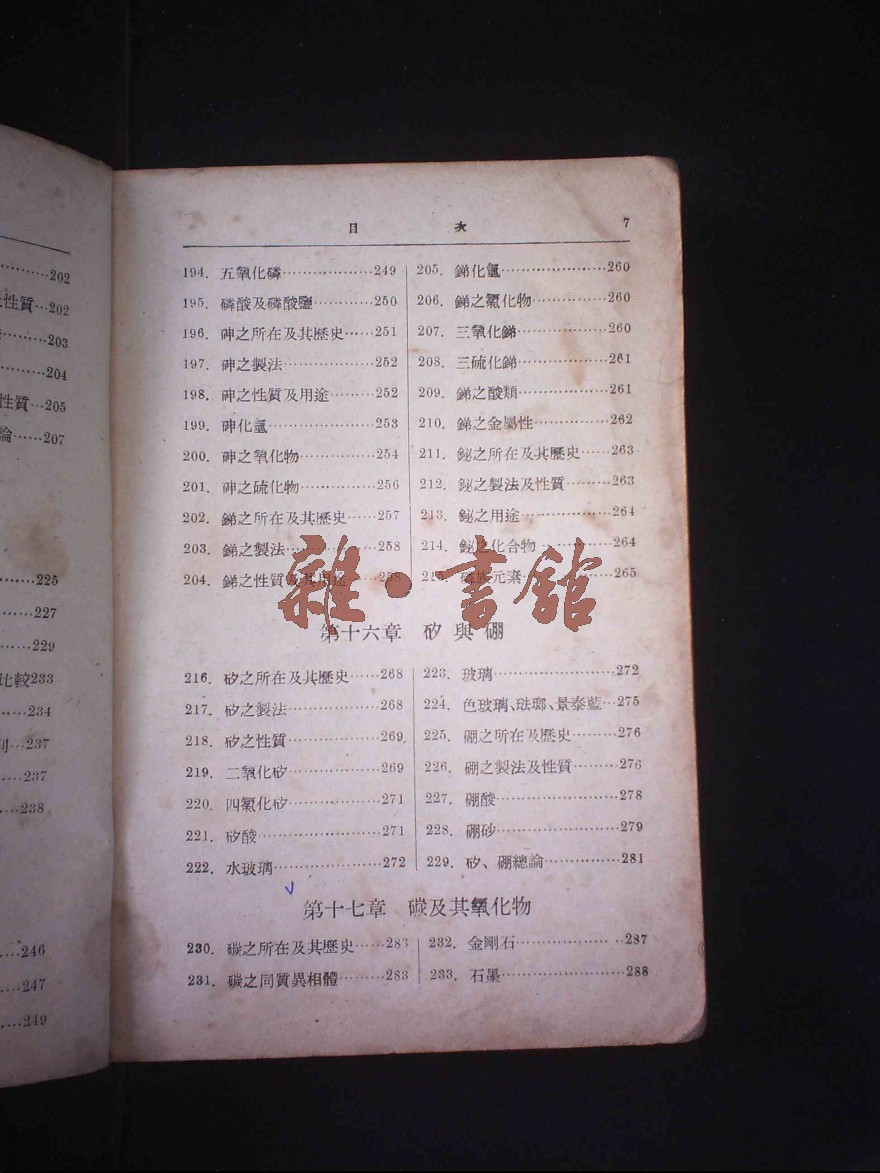 202
性質…202
203
204
性質…205
論……207
225
227
229
比較233
234
列…237
237
238
246
247
249
目 次 7
194. 五氧化磷………………249
195. 磷酸及磷酸鹽…………250
196. 砷之所在及其歷史……251
197. 砷之製法………………252
198. 砷之性質及用途………252
199. 砷化氫…………………253
200. 砷之氧化物……………254
201. 砷之硫化物……………256
202. 銻之所在及其歷史……257
203. 銻之製法………………258
204. 銻之性質及其用途……258
205. 銻化氫…………………260
206. 銻之氯化物……………260
207. 三氧化銻………………260
208. 三硫化銻………………261
209. 銻之酸類………………261
210. 銻之金屬性……………262
211. 鉍之所在及其歷史……263
212. 鉍之製法及性質………263
213. 鉍之用途………………264
214. 鉍之化合物……………264
215. 磷族元素………………265
雜·書館
第十六章 矽與硼
216. 矽之所在及其歷史……268
217. 矽之製法………………268
218. 矽之性質………………269
219. 二氧化矽………………269
220. 四氯化矽………………271
221. 矽酸……………………271
222. 水玻璃…………………272
223. 玻璃……………………272
224. 色玻璃、琺瑯、景泰藍…275
225. 硼之所在及歷史………276
226. 硼之製法及性質………276
227. 硼酸……………………278
228. 硼砂……………………279
229. 矽、硼總論……………281
第十七章 碳及其氧化物
230. 碳之所在及其歷史……283
231. 碳之同質異相體………283
232. 金剛石…………………287
233. 石墨……………………288